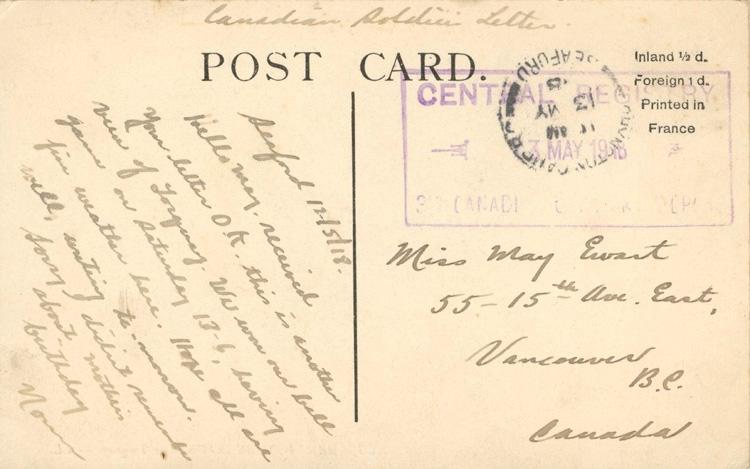 Canadian Soldier Letter.
POST CARD.
Inland ½ d.
Foreign 1 d.
Printed in
France
CENTRAL REGISTRY
13 MAY 1918
CANADI
SEAFORD
13 MY
Seaford 12/5/18.
Hello May. received
your letter OK. this is another
view of Torquay. We won our ball
game on Saturday 13-6, having
fine weather here. Hope all are
well, writing to-morrow.
Sorry I didn't remember
about mothers
birthday
Norm
Miss May Ewart
55-15th Ave. East,
Vancouver
B.C.
Canada